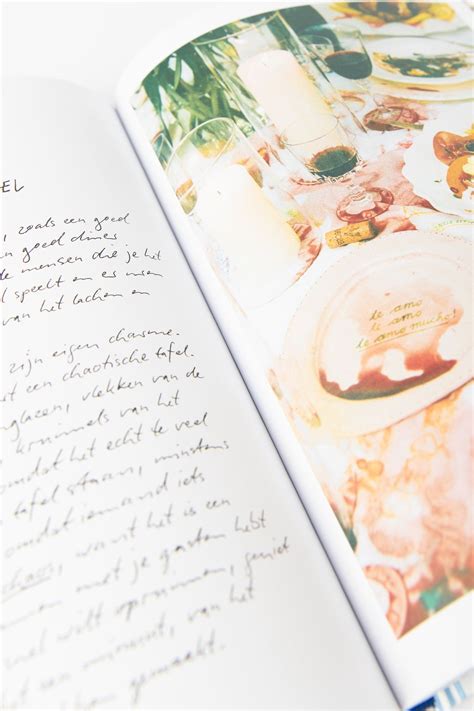 EL
, zoals een goed
n goed diner
de mensen die je het
l speelt en es
van het lachen en
zijn eigen charme.
rt een chaotische tafel.
nglazen, vlekken van de
kruimels van het
omdat het echt te veel
tafel staan, minstens
omdat iemand iets
chaos, want het is een
men met je gasten hebt
nel wilt opruimen, geniet
t een minuut, van het
gemaakt.
te amo
te amo
te amo mucho!